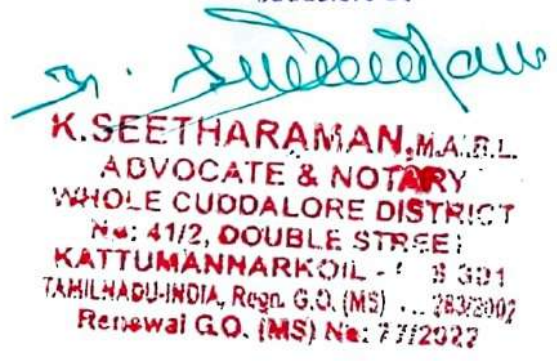 K.SEETHARAMAN, M.A.B.L.
ADVOCATE & NOTARY
WHOLE CUDDALORE DISTRICT
No: 41/2, DOUBLE STREET
KATTUMANNARKOIL -
TAMILNADU-INDIA, Regn. G.O. (MS) ... 283/2002
Renewal G.O. (MS) No: